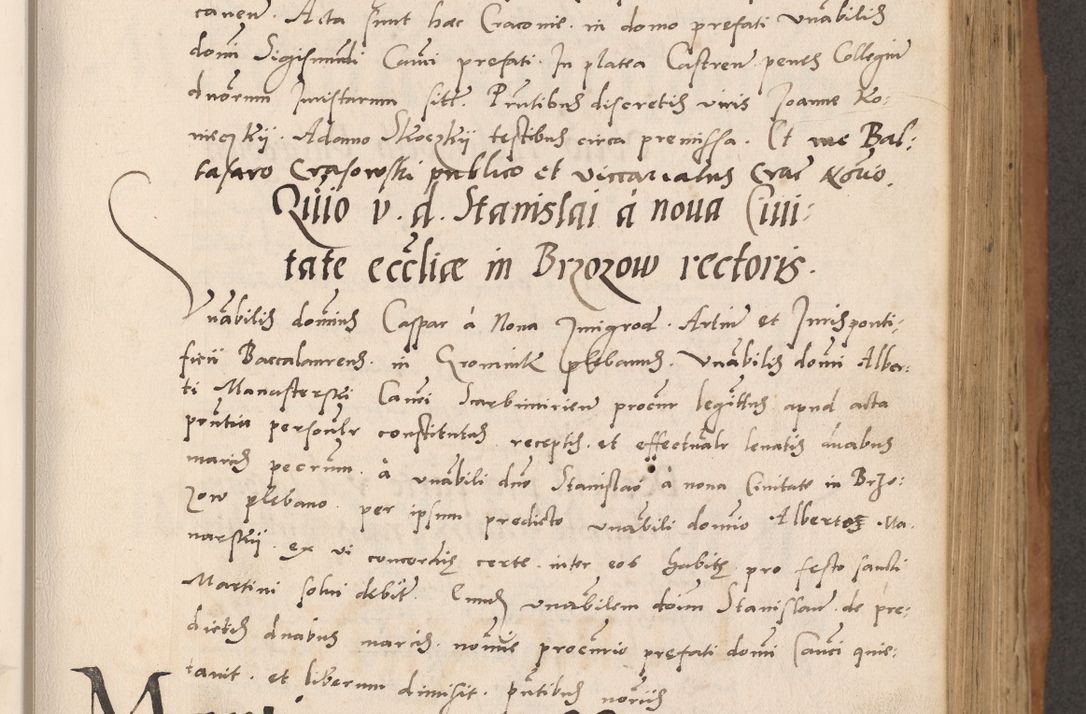 canen̄. Acta sunt hæc Cracovie. in domo prefati vnābilis
domi Sigismūdi Canīci prefati. In platea Castren̄ penes Collegiū
duorum Juristarum sitt. Pn̄tibus discretis viris Joanne Ko:
nieczkÿ. Adamo Skoczkÿ testibus circa premissa. Et me Bal:
tasaro Crasowski publico et viccariatus Crac̄ No͞rio.
Quĳo v. d. Stanislai á noua Ciui:
tate eccliæ in Brzozow rectoris.
Vnabilis dominus Caspar à Nona Jmigrod. Artiū et Juris ponti:
ficii Baccalaureus. in plebanus. Vnabilis domi Alber:
ti Manasterski Canīci Scarbimirien̄ procūr legittus apud acta
pn̄tia personlr constitutus receptis. et effectualr leuatis duabus
marcis pecrum. à vnabili dno Stanislao à noua Ciuitate in Brzo:
zow plebano. per ipsum predicto vnabili domio Alberto Ma.
narskÿ. ex vi concordiæ certe. inter eos habitæ pro festo sancti
Martini solui debit. Eundem vnabilem dom̄ Stanislaū. de pre:
dictis duabus marcis. nomīe procūrio prefati domi Canīci quie:
tauit. et liberum dimisit. pn̄tibus